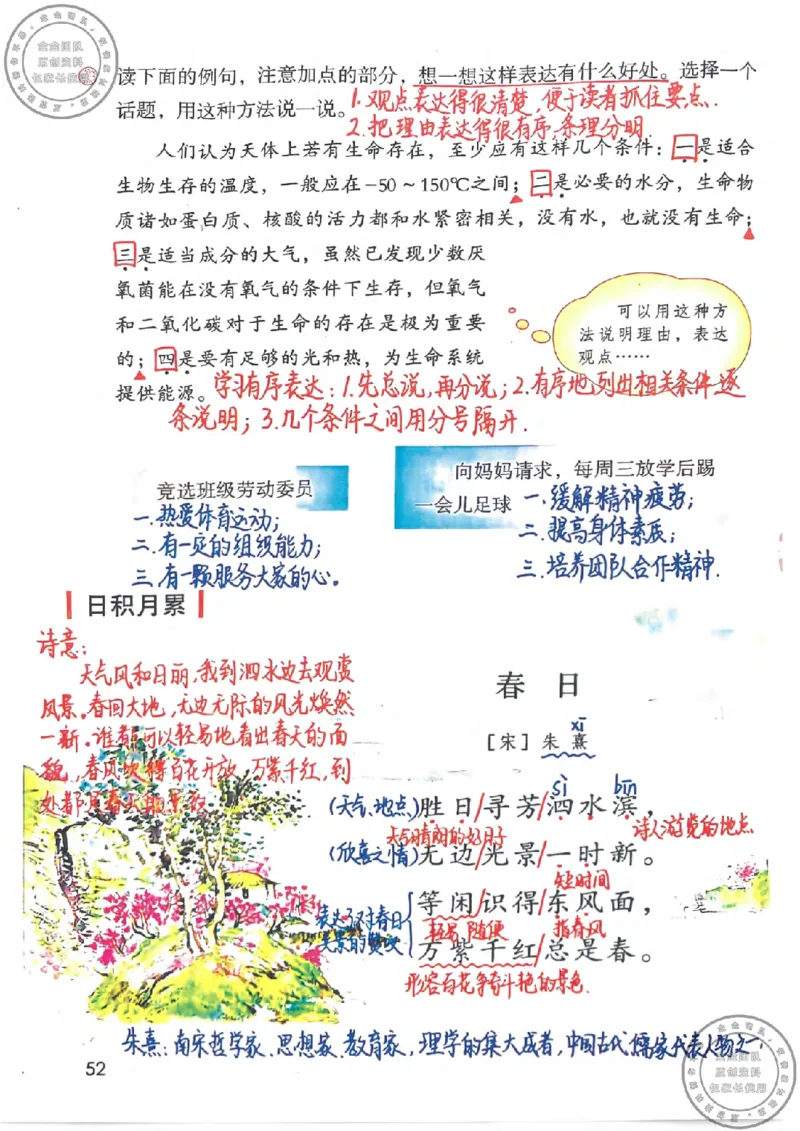 读下面的例句，注意加点的部分，想一想这样表达有什么好处。选择一个
话题，用这种方法说一说。
1.观点表达得很清楚，便于读者抓住要点.
2.把理由表达得很有序.条理分明.
人们认为天体上若有生命存在，至少应有这样几个条件：一是适合
生物生存的温度，一般应在-50～150℃之间；二是必要的水分，生命物
质诸如蛋白质、核酸的活力都和水紧密相关，没有水，也就没有生命；
三是适当成分的大气，虽然已发现少数厌
氧菌能在没有氧气的条件下生存，但氧气
和二氧化碳对于生命的存在是极为重要
的；四是要有足够的光和热，为生命系统
提供能源。
可以用这种方
法说明理由，表达
观点……
学习有序表达：1.先总说,再分说；2.有序地列出相关条件逐
条说明；3.几个条件之间用分号隔开.
竞选班级劳动委员
一.热爱体育运动；
二.有一定的组织能力；
三.有一颗服务大家的心。
向妈妈请求，每周三放学后踢
一会儿足球
一.缓解精神疲劳；
二.提高身体素质；
三.培养团队合作精神.
日积月累
诗意：
天气风和日丽,我到泗水边去观赏
风景。春回大地,无边无际的风光焕然
一新。谁都可以轻易地看出春天的面
貌,春风吹得百花开放,万紫千红,到
处都是春天的景致
春 日
xī
［宋］朱 熹
sì bīn
(天气、地点)胜日/寻芳/泗水滨，
天气晴朗的好日子
诗人游览的地点
(欣喜之情)无边/光景/一时新。
短时间
等闲/识得/东风面，
轻易、随便 指春风
表达了对春日
美景的赞叹
万紫千红/总是春。
形容百花争奇斗艳的景色.
朱熹：南宋哲学家、思想家、教育家，理学的集大成者，中国古代儒家代表人物之一.
52